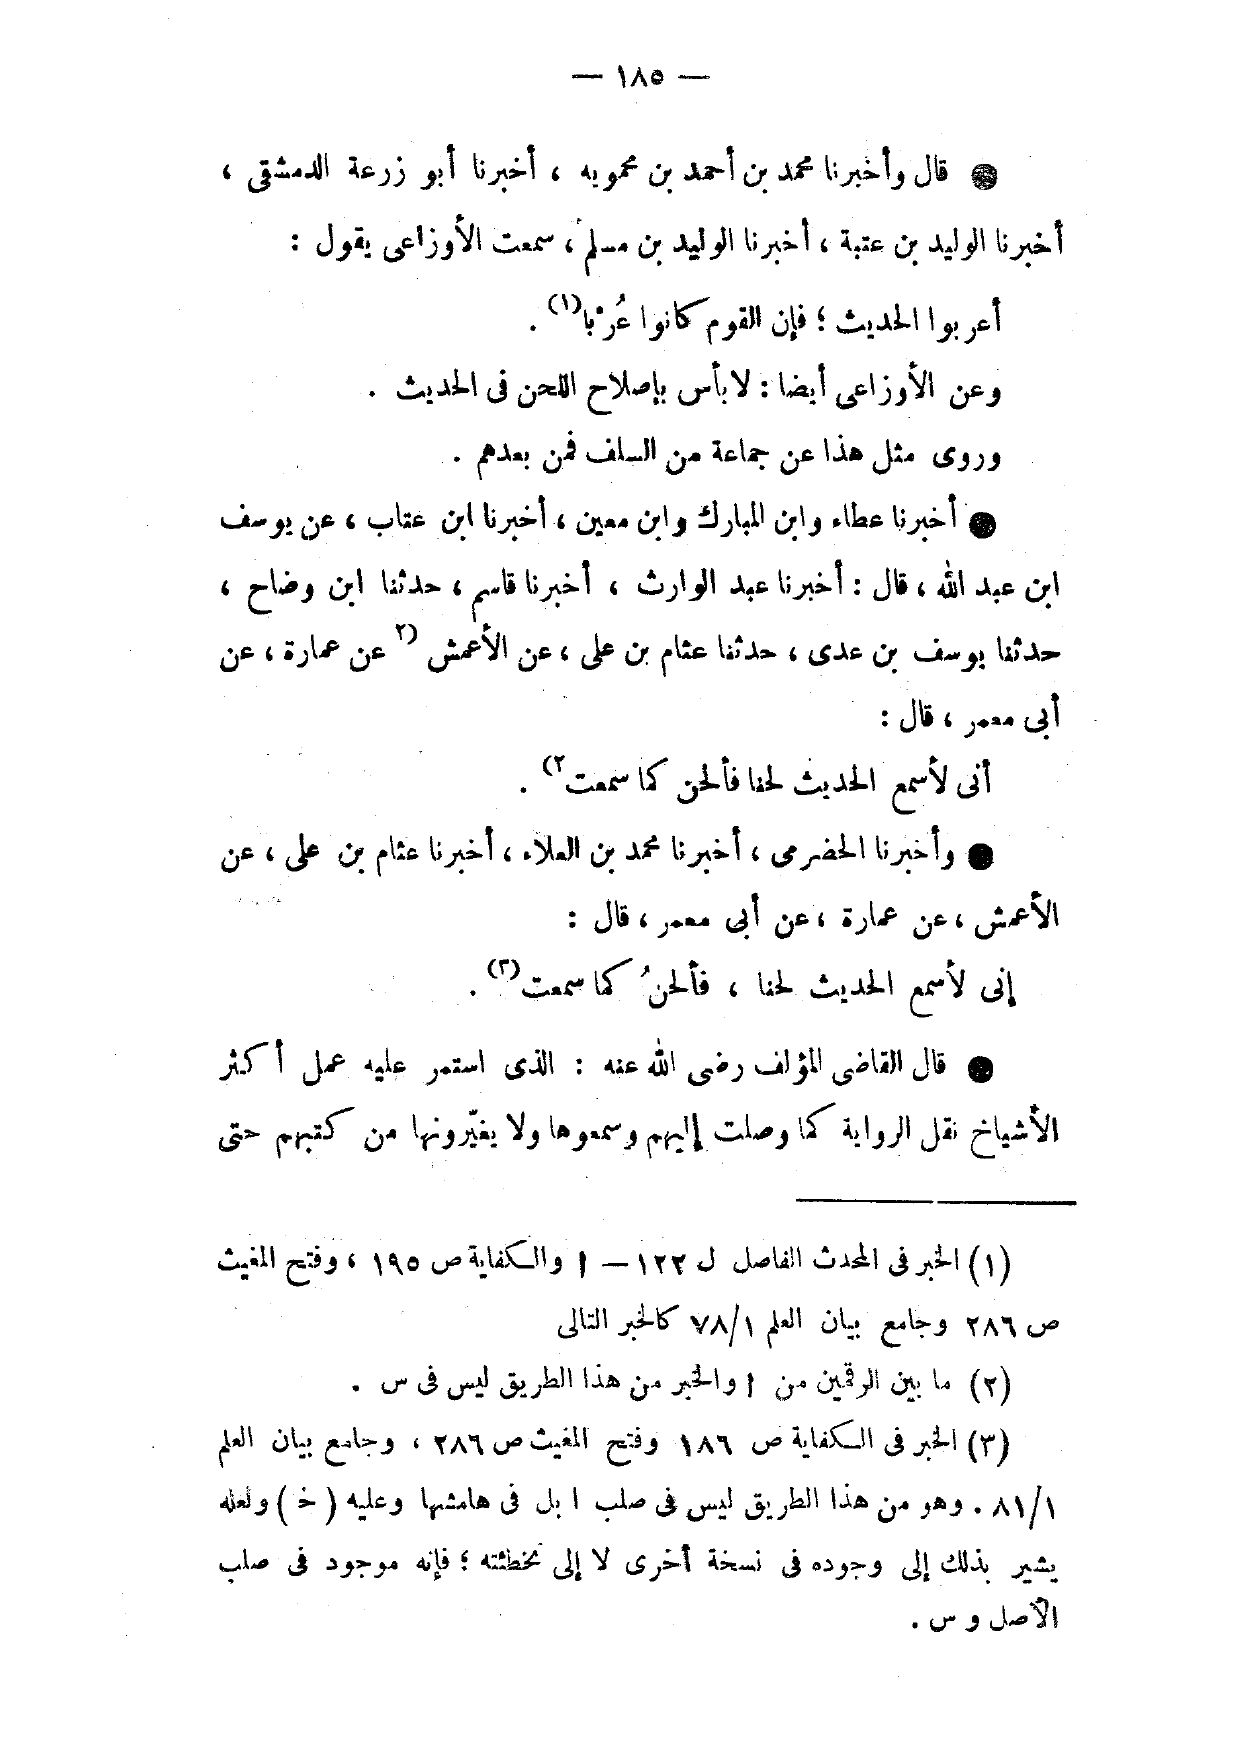 — ١٨٥ —
● قال وأخبرنا محمد بن أحمد بن محمويه ، أخبرنا أبو زرعة الدمشقى ،
أخبرنا الوليد بن عتبة ، أخبرنا الوليد بن مسلم ، سمعت الأوزاعى يقول :
أعربوا الحديث ؛ فإن القوم كانوا عُرْبا(١) .
وعن الأوزاعى أيضا : لا بأس بإصلاح اللحن فى الحديث .
وروى مثل هذا عن جماعة من السلف فمن بعدهم .
● أخبرنا عطاء وابن المبارك وابن معين ، أخبرنا ابن عتاب ، عن يوسف
ابن عبد الله ، قال : أخبرنا عبد الوارث ، أخبرنا قاسم ، حدثنا ابن وضاح ،
حدثنا يوسف بن عدى ، حدثنا عثام بن على ، عن الأعمش (٢ عن عمارة ، عن
أبى معمر ، قال :
أنى لأسمع الحديث لحنا فألحن كما سمعت٢) .
● وأخبرنا الحضرمى ، أخبرنا محمد بن العلاء ، أخبرنا عثام بن على ، عن
الأعمش ، عن عمارة ، عن أبى معمر ، قال :
إنى لأسمع الحديث لحنا ، فألحنُ كما سمعت(٣) .
● قال القاضى المؤلف رضى الله عنه : الذى استمر عليه عمل أكثر
الأشياخ نقل الرواية كما وصلت إليهم وسمعوها ولا يغيّرونها من كتبهم حتى
(١) الخبر فى المحدث الفاصل ل ١٢٢ — ا والكفاية ص ١٩٥ ، وفتح المغيث
ص ٢٨٦ وجامع بيان العلم ٧٨/١ كالخبر التالى
(٢) ما بين الرقمين من ا والخبر من هذا الطريق ليس فى س .
(٣) الخبر فى الكفاية ص ١٨٦ وفتح المغيث ص ٢٨٦ ، وجامع بيان العلم
٨١/١ . وهو من هذا الطريق ليس فى صلب ا بل فى هامشها وعليه ( خ ) ولعله
يشير بذلك إلى وجوده فى نسخة أخرى لا إلى تخطئته ؛ فإنه موجود فى صلب
الأصل و س .